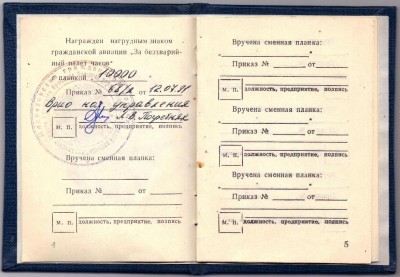 Награжден нагрудным знаком
гражданской авиации „За безаварий-
ный налет часов“
с планкой „ 10000
Приказ № от 12.07.91
Врио нач. управления
м. п. должность, предприятие, подпись
Вручена сменная планка:
„ “
Приказ № от
м. п. должность, предприятие, подпись
4
Вручена сменная планка:
„ “
Приказ № от
м. п. должность, предприятие, подпись
Вручена сменная планка:
„ “
Приказ № от
м. п. должность, предприятие, подпись
Вручена сменная планка:
„ “
Приказ № от
м. п. должность, предприятие, подпись
5